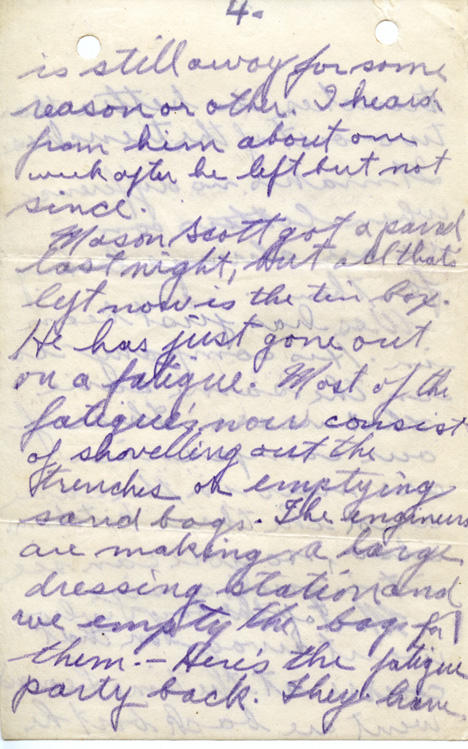 4.
is still away for some
reason or other. I heard
from him about one
week after he left but not
since.
Mason Scott got a parcel
last night, but all that's
left now is the tin box.
He has just gone out
on a fatigue. Most of the
fatigues now consist
of shovelling out the
trenches or emptying
sand bags. The engineers
are making a large
dressing station and
we empty the bags for
them. – Here's the fatigue
party back. They have